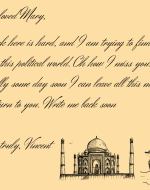 loved Mary,
k here is hard, and I am trying to find
this political world. Oh how I miss your
lly some day soon I can leave all this m
urn to you. Write me back soon
truly, Vincent